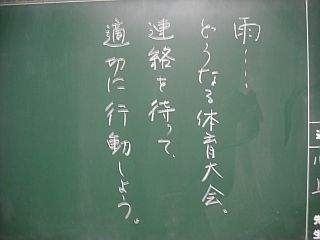 雨・・・
どうなる体育大会。
連絡を待って、
適切に行動しよう。